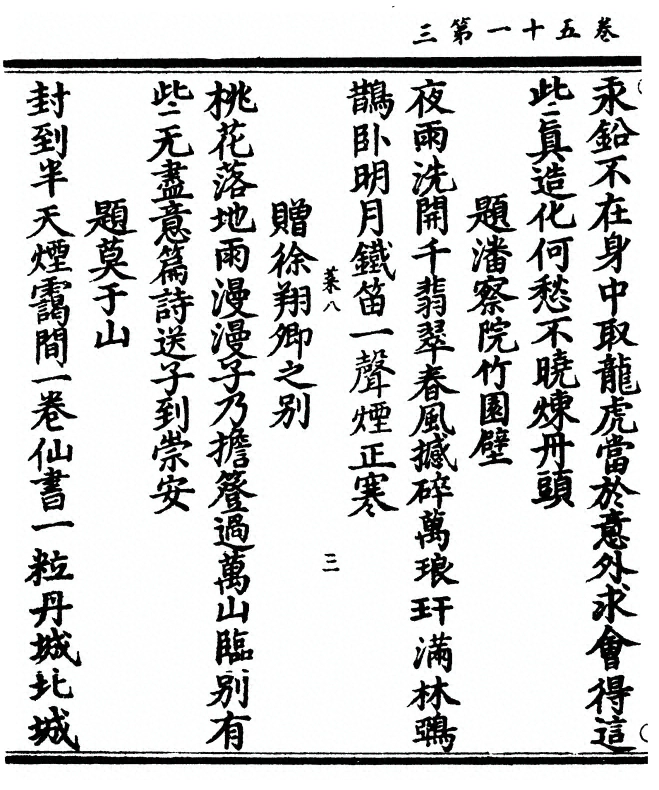 卷五十一第三
汞鉛不在身中取龍虎當於意外求會得這
些眞造化何愁不曉煉丹頭
題潘察院竹園壁
夜雨洗開千翡翠春風撼碎萬琅玕滿林鵶
鵲卧明月鐵笛一聲煙正寒
八
三
贈徐翔卿之别
桃花落地雨漫漫子乃擔簦過萬山臨别有
些无盡意篇詩送子到崇安
題莫于山
封到半天煙靄間一卷仙書一粒丹城北城